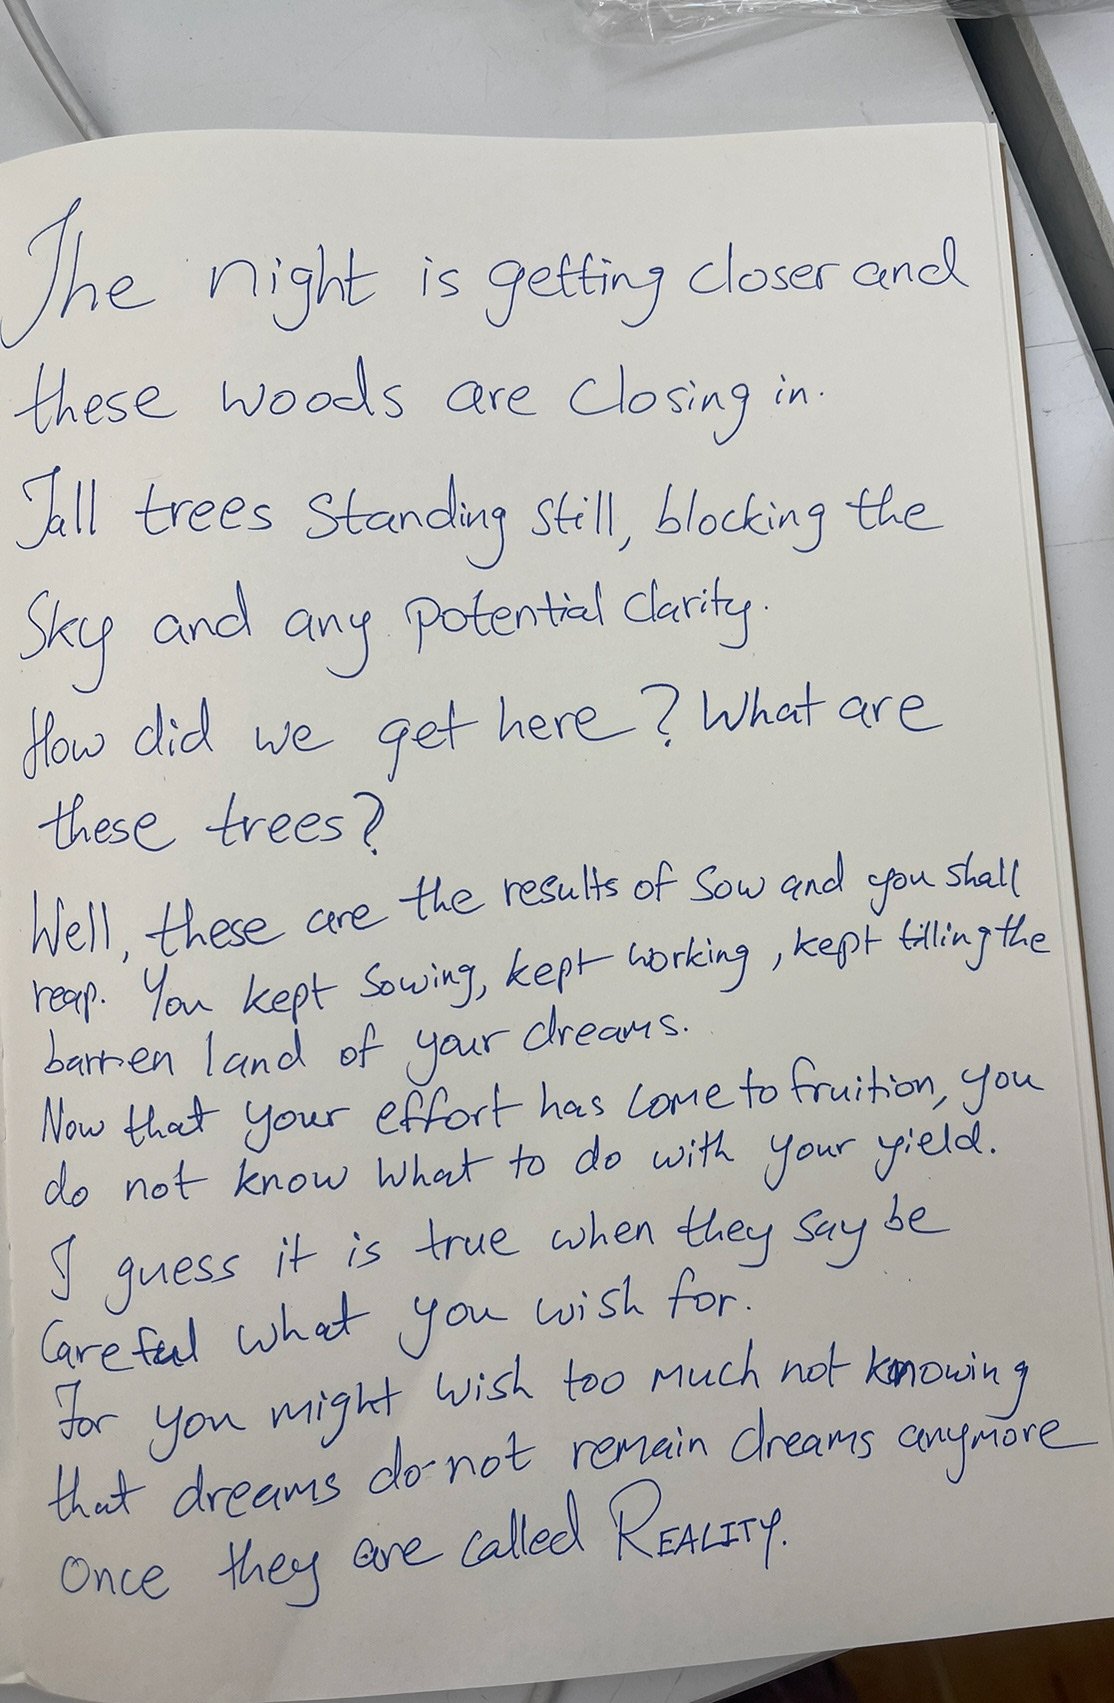 The night is getting closer and
these woods are closing in.
Tall trees standing still, blocking the
sky and any potential clarity.
How did we get here? What are
these trees?
Well, these are the results of sow and you shall
reap. You kept sowing, kept working, kept tilling the
barren land of your dreams.
Now that your effort has come to fruition, you
do not know what to do with your yield.
I guess it is true when they say be
careful what you wish for.
For you might wish too much not knowing
that dreams do not remain dreams anymore
once they are called REALITY.